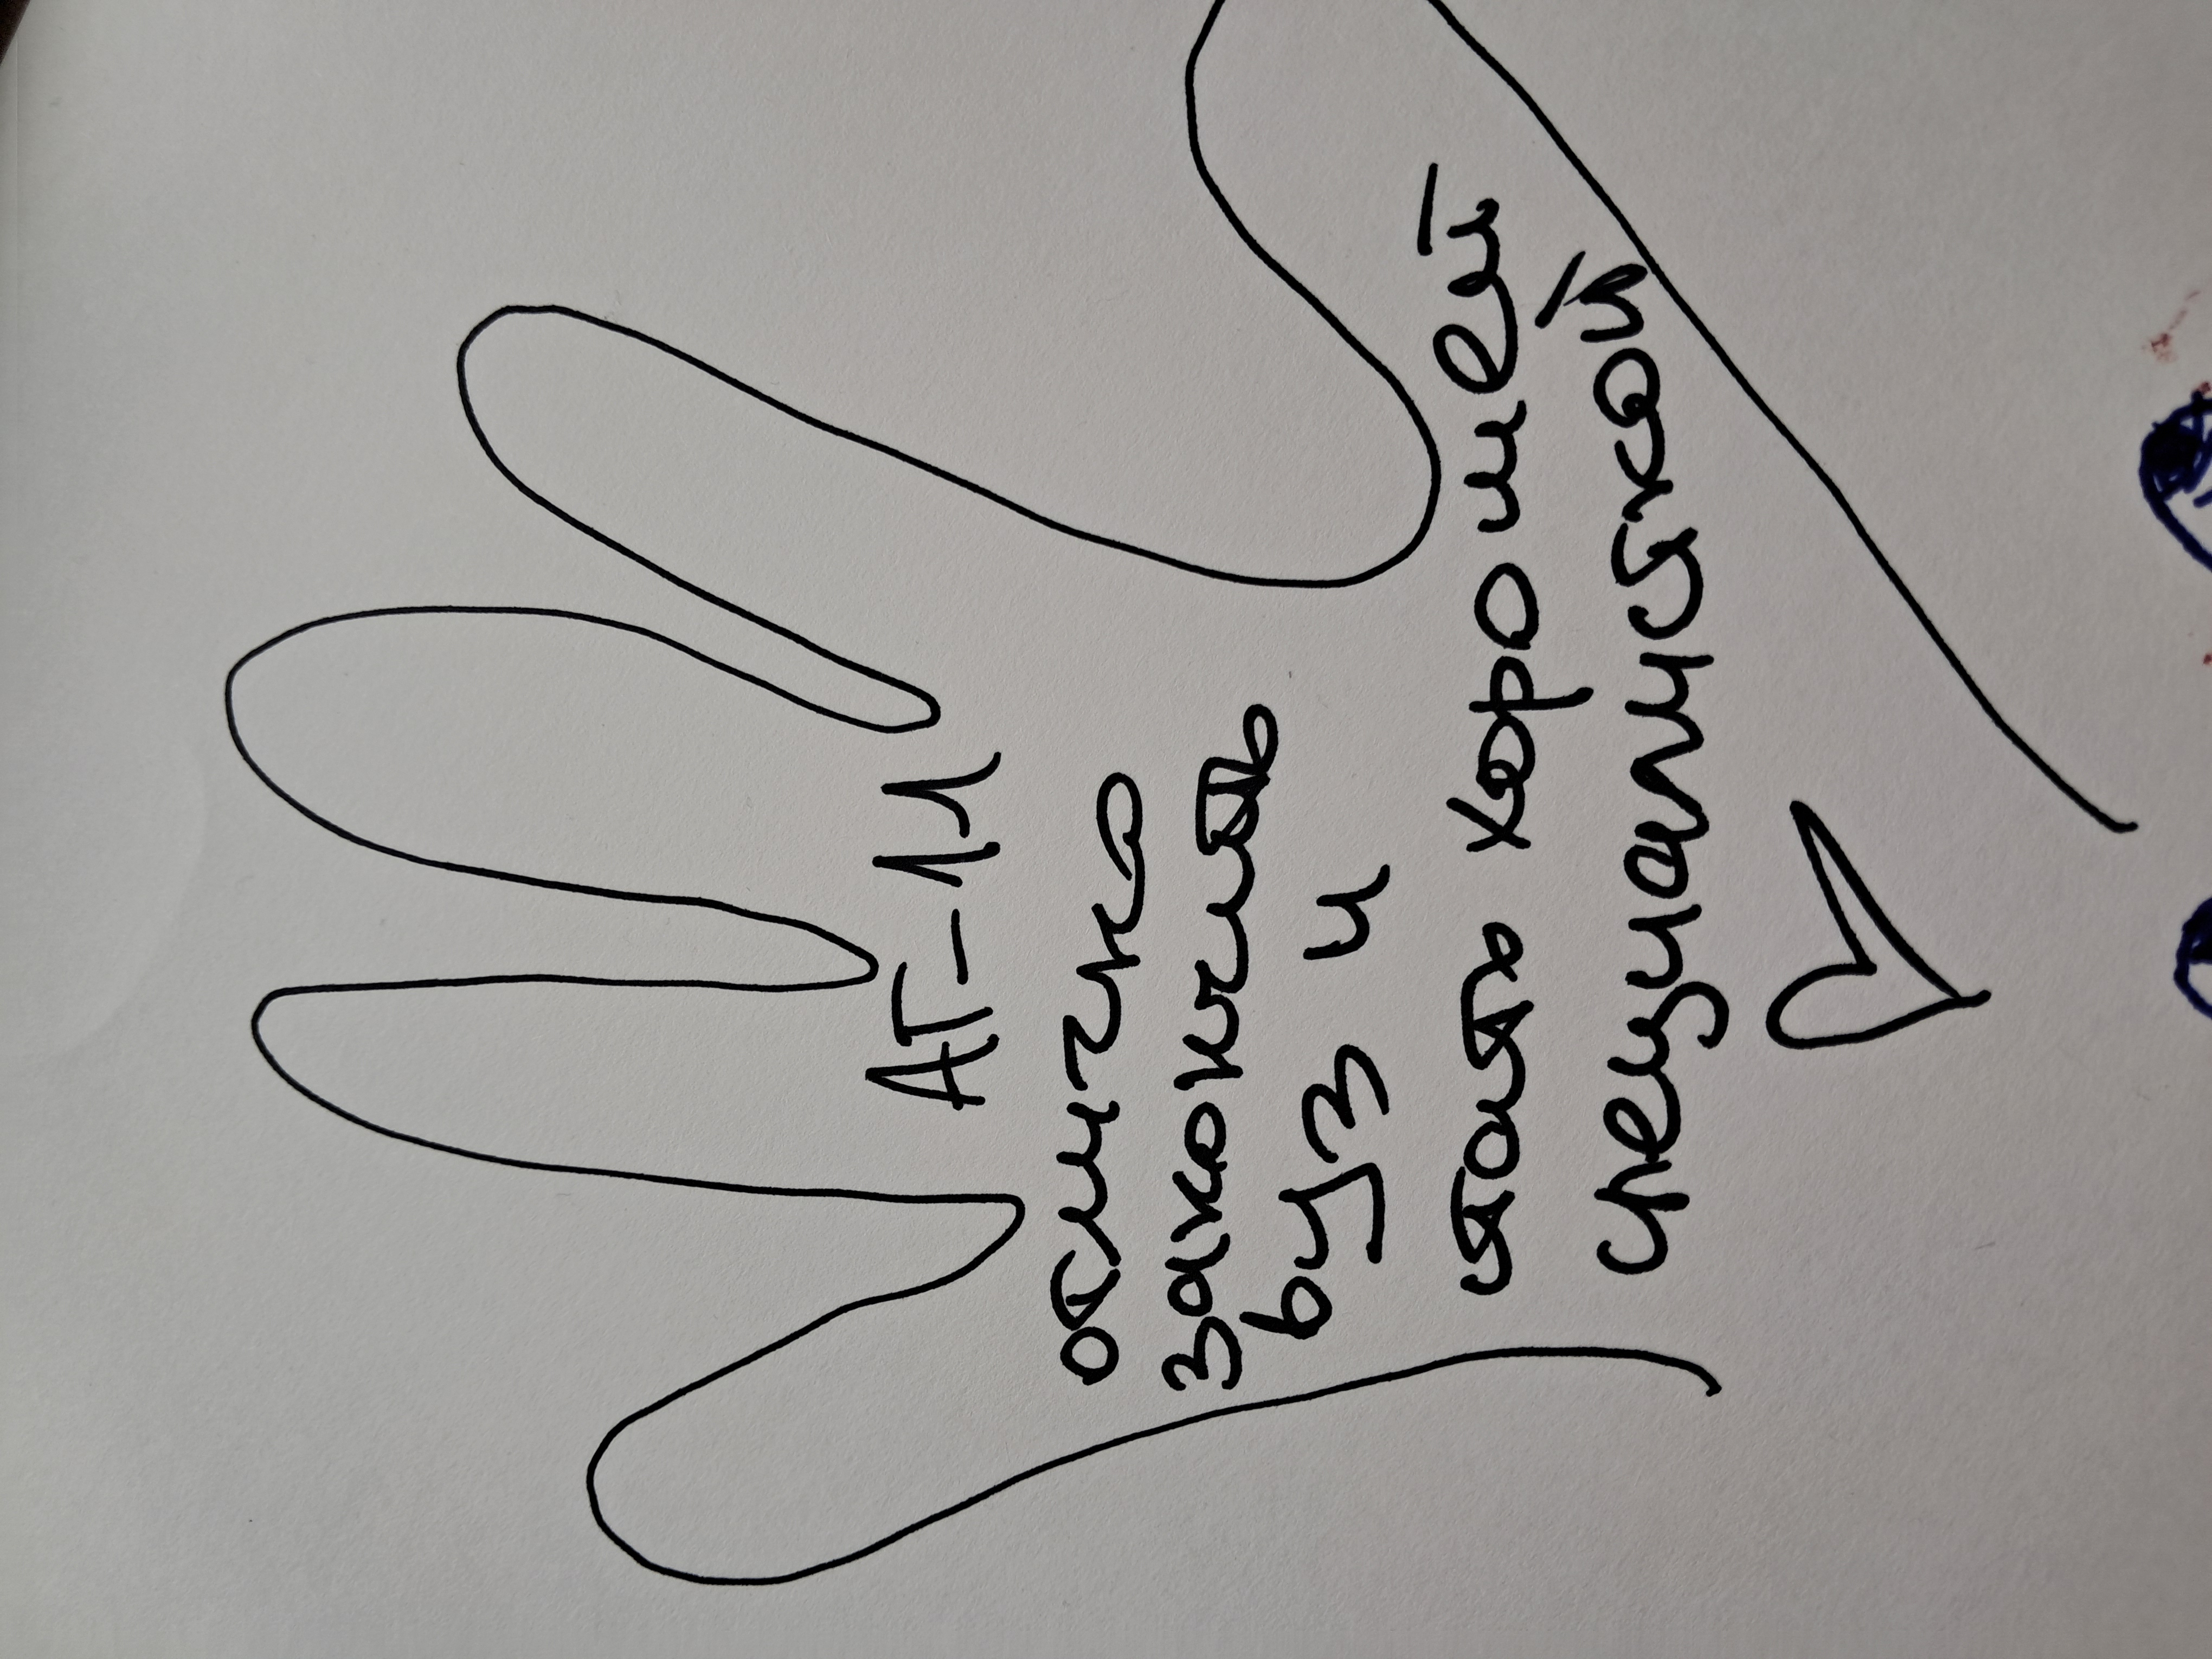 АГ-11
отлично
закончить
вуз и
стать хорошей
специалисткой